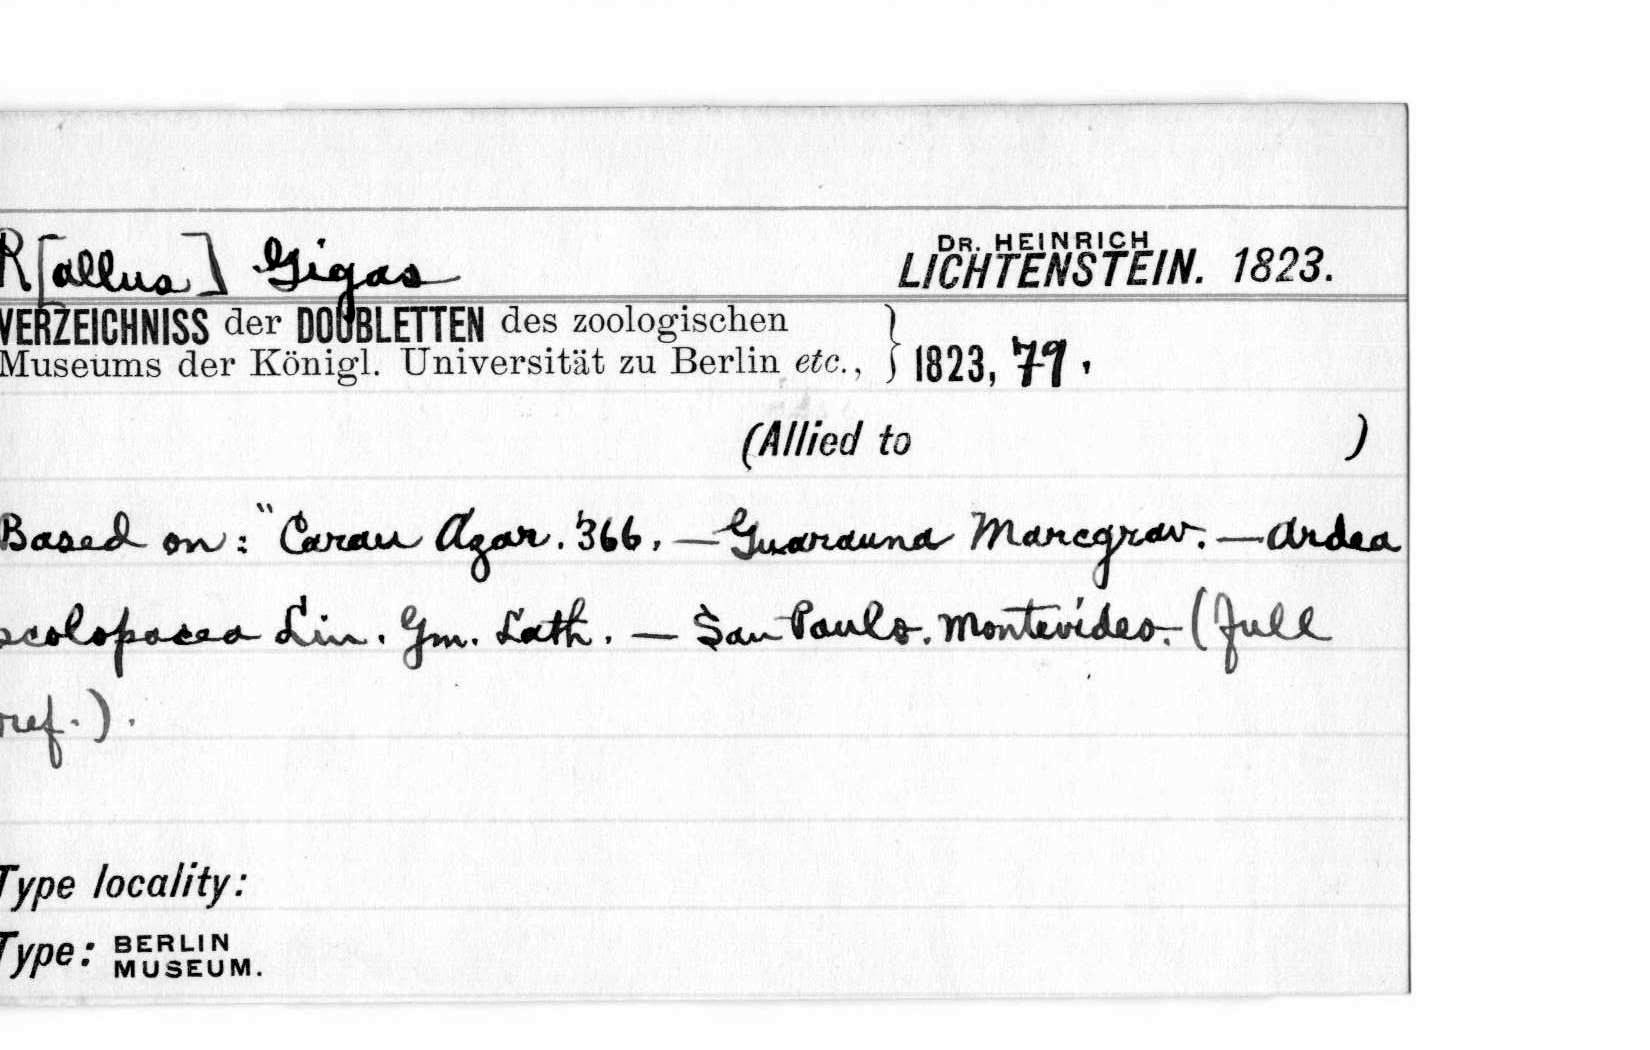 R[allus] Gigas
DR. HEINRICH
LICHTENSTEIN. 1823.
VERZEICHNISS der DOUBLETTEN des zoologischen
Museums der Königl. Universität zu Berlin etc., } 1823, 79.
(Allied to )
Based on: "Carau Azar. 366. — Guarauna Marcgrav. — Ardea
scolopacea Lin. Gm. Lath. — San Paulo. Montevideo. (full
ref.).
Type locality:
Type: BERLIN
MUSEUM.